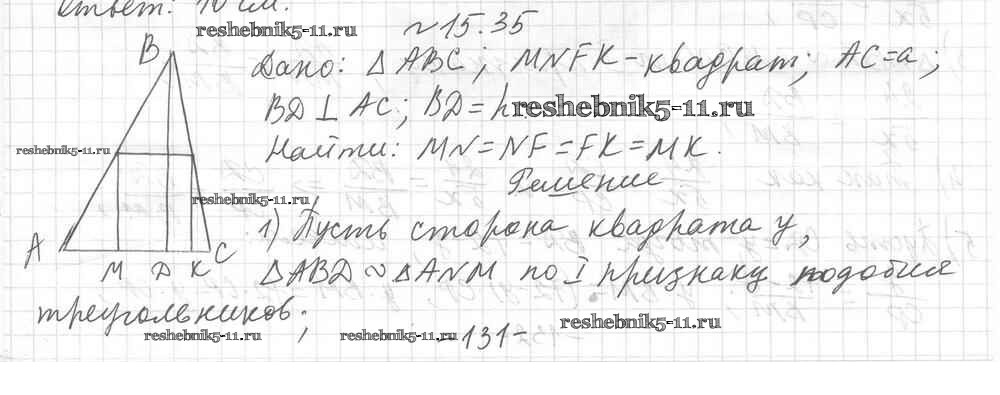 Ответ: 10 см.
reshebnik5-11.ru
~15.35
B
Дано: △ABC; MNFK-квадрат; AC=a;
BD⊥AC; BD=h
reshebnik5-11.ru
reshebnik5-11.ru
Найти: MN=NF=FK=MK.
Решение
reshebnik5-11.ru
1) Пусть сторона квадрата y,
A
M D K C
△ABD ~ △ANM по I признаку подобия
треугольников;
reshebnik5-11.ru
reshebnik5-11.ru
-131-
reshebnik5-11.ru